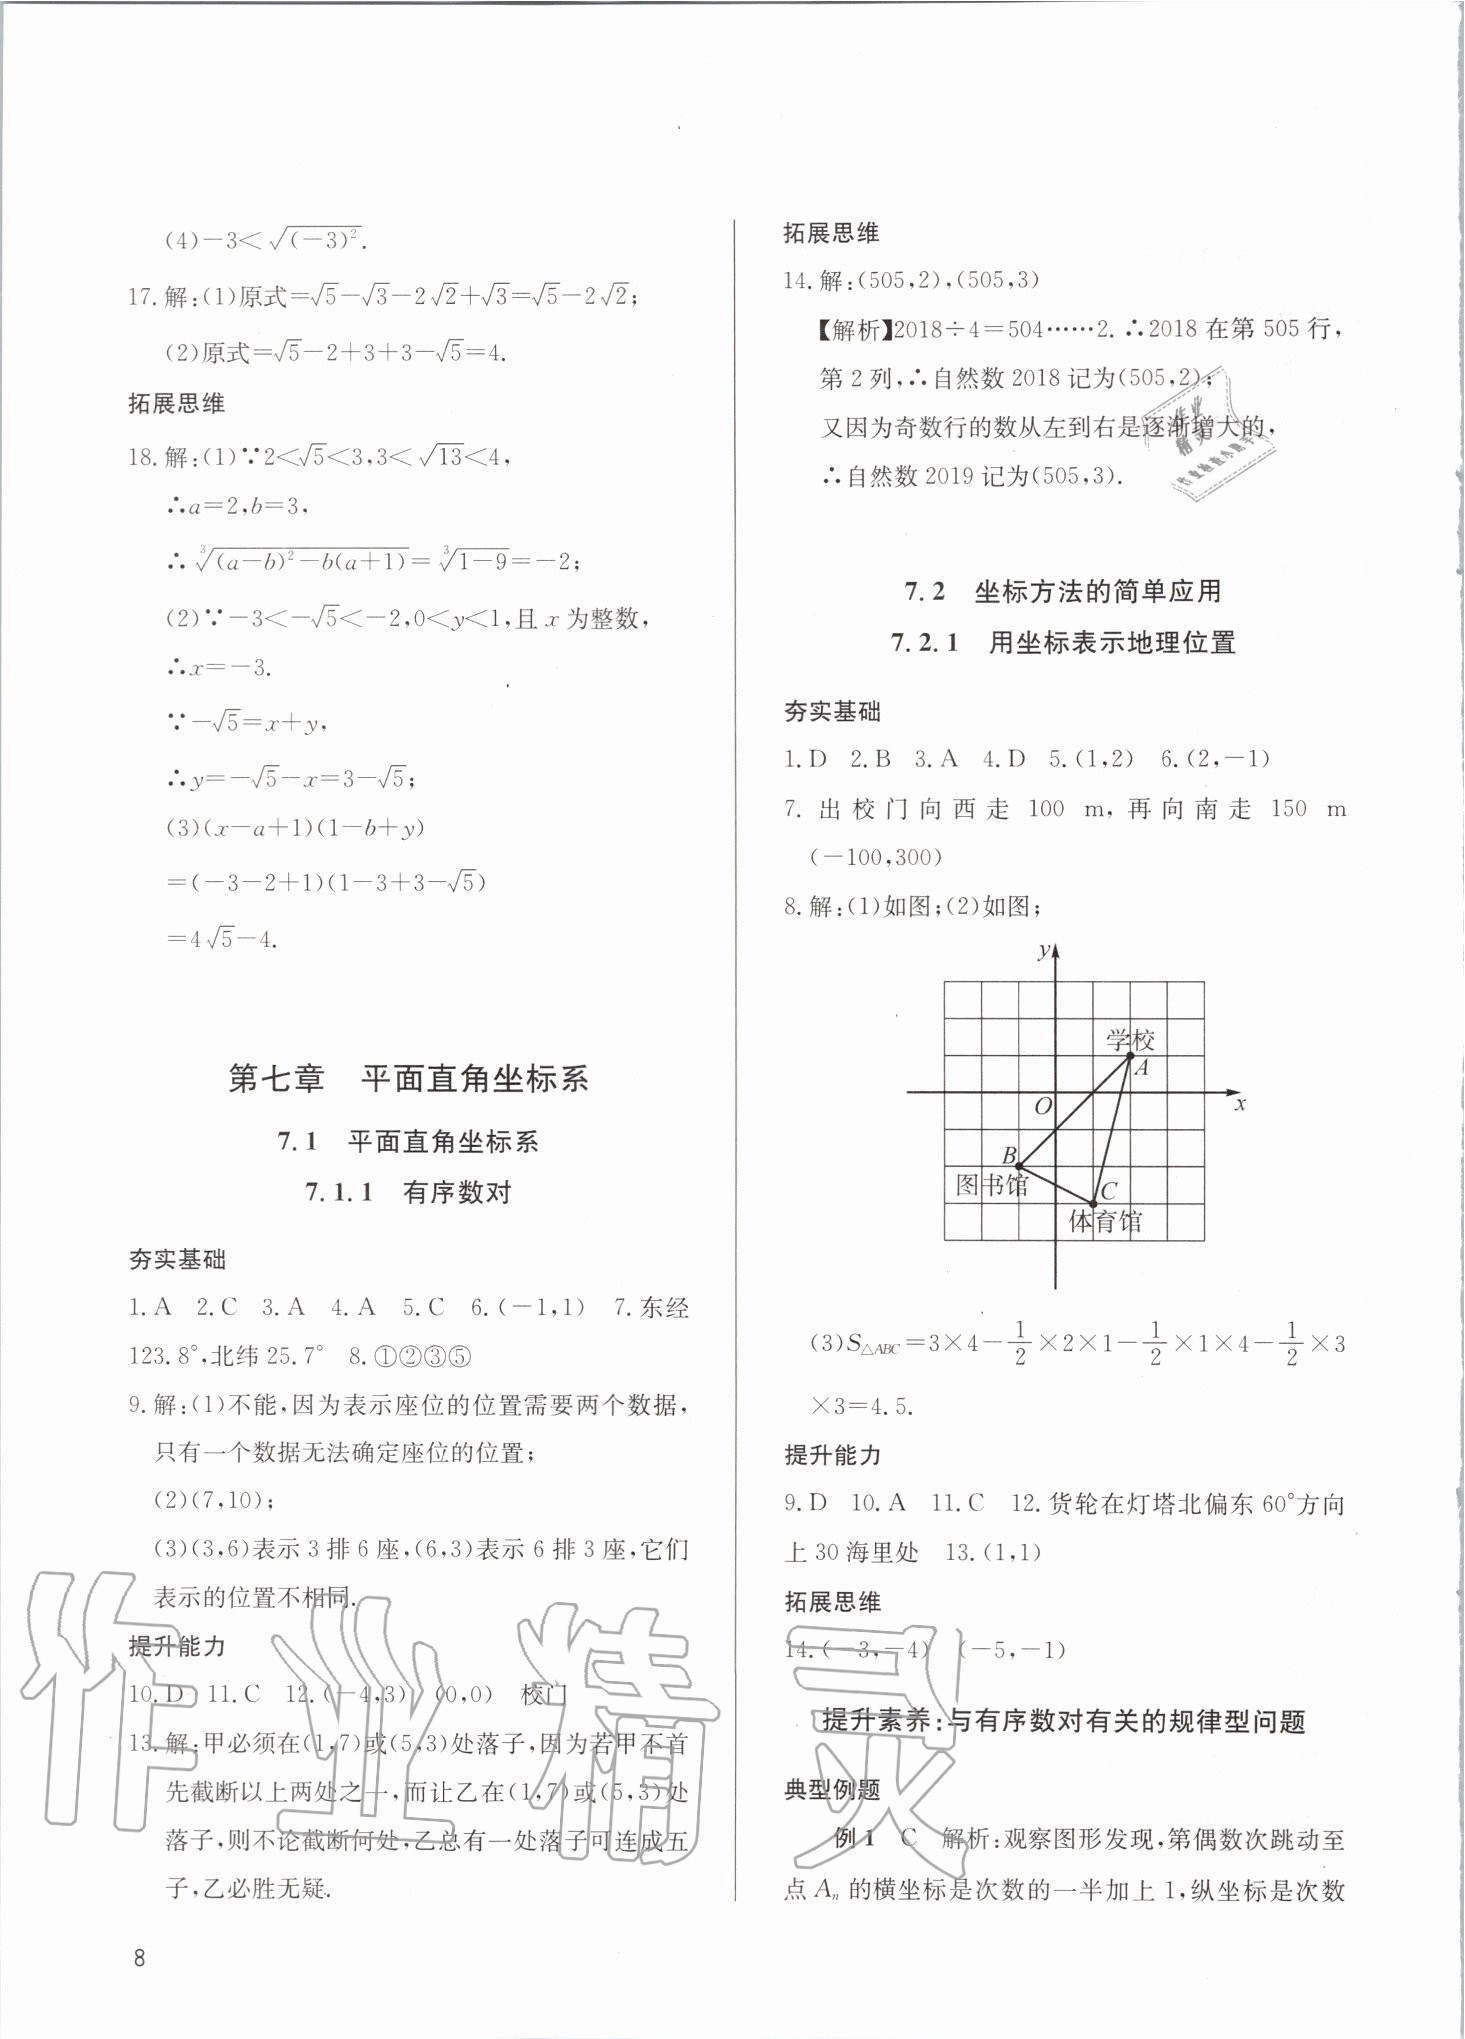 (4)−3＜√(−3)².
17. 解:(1)原式=√5−√3−2√2+√3=√5−2√2;
(2)原式=√5−2+3+3−√5=4.
拓展思维
18. 解:(1)∵2＜√5＜3,3＜√13＜4,
∴a=2,b=3,
∴∛(a−b)²−b(a+1)=∛1−9=−2;
(2)∵−3＜−√5＜−2,0＜y＜1,且 x 为整数,
∴x=−3.
∵−√5=x+y,
∴y=−√5−x=3−√5;
(3)(x−a+1)(1−b+y)
=(−3−2+1)(1−3+3−√5)
=4√5−4.
第七章 平面直角坐标系
7.1 平面直角坐标系
7.1.1 有序数对
夯实基础
1. A 2. C 3. A 4. A 5. C 6. (−1,1) 7. 东经
123.8°,北纬25.7° 8. ①②③⑤
9. 解:(1)不能,因为表示座位的位置需要两个数据,
只有一个数据无法确定座位的位置;
(2)(7,10);
(3)(3,6)表示 3 排 6 座,(6,3)表示 6 排 3 座,它们
表示的位置不相同.
提升能力
10. D 11. C 12. (−4,3) (0,0) 校门
13. 解:甲必须在(1,7)或(5,3)处落子,因为若甲不首
先截断以上两处之一,而让乙在(1,7)或(5,3)处
落子,则不论截断何处,乙总有一处落子可连成五
子,乙必胜无疑.
8
拓展思维
14. 解:(505,2),(505,3)
【解析】2018÷4=504……2. ∴2018 在第 505 行,
第 2 列,∴自然数 2018 记为(505,2);
又因为奇数行的数从左到右是逐渐增大的,
∴自然数 2019 记为(505,3).
7.2 坐标方法的简单应用
7.2.1 用坐标表示地理位置
夯实基础
1. D 2. B 3. A 4. D 5. (1,2) 6. (2,−1)
7. 出校门向西走 100 m,再向南走 150 m
(−100,300)
8. 解:(1)如图;(2)如图;
y
学校
A
O
x
B
图书馆
C
体育馆
(3)S△ABC=3×4−1/2×2×1−1/2×1×4−1/2×3
×3=4.5.
提升能力
9. D 10. A 11. C 12. 货轮在灯塔北偏东 60°方向
上 30 海里处 13. (1,1)
拓展思维
14. (−3,−4) (−5,−1)
提升素养:与有序数对有关的规律型问题
典型例题
例 1 C 解析:观察图形发现,第偶数次跳动至
点 Aₙ 的横坐标是次数的一半加上 1,纵坐标是次数
作业精灵